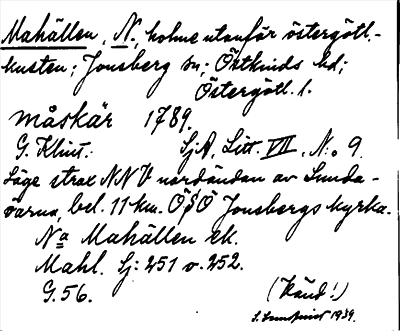 Mahällen, N., holme utanför östergötl.-
kusten; Jonsberg sn; Östkinds hd;
Östergötl. l.
måskär 1789.
G. Klint: SjA, Litt. VII, N:o 9.
Läge strax NNV nordändan av Lunda-
öarna, bel. 11 km. OSO Jonsbergs kyrka.
Na Mahällen ek.
Mahl. Sj: 251 o. 252.
G. 56.
(Känd!)
1939.